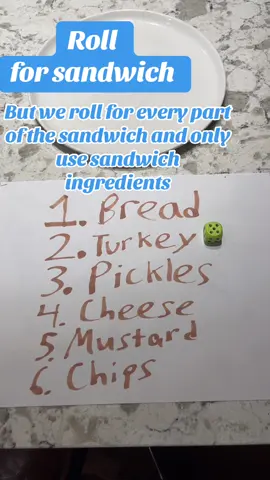 Roll
for sandwich
But we roll for every part
of the sandwich and only
use sandwich
ingredients
1. Bread
2. Turkey
3. Pickles
4. Cheese
5. Mustard
6. Chips